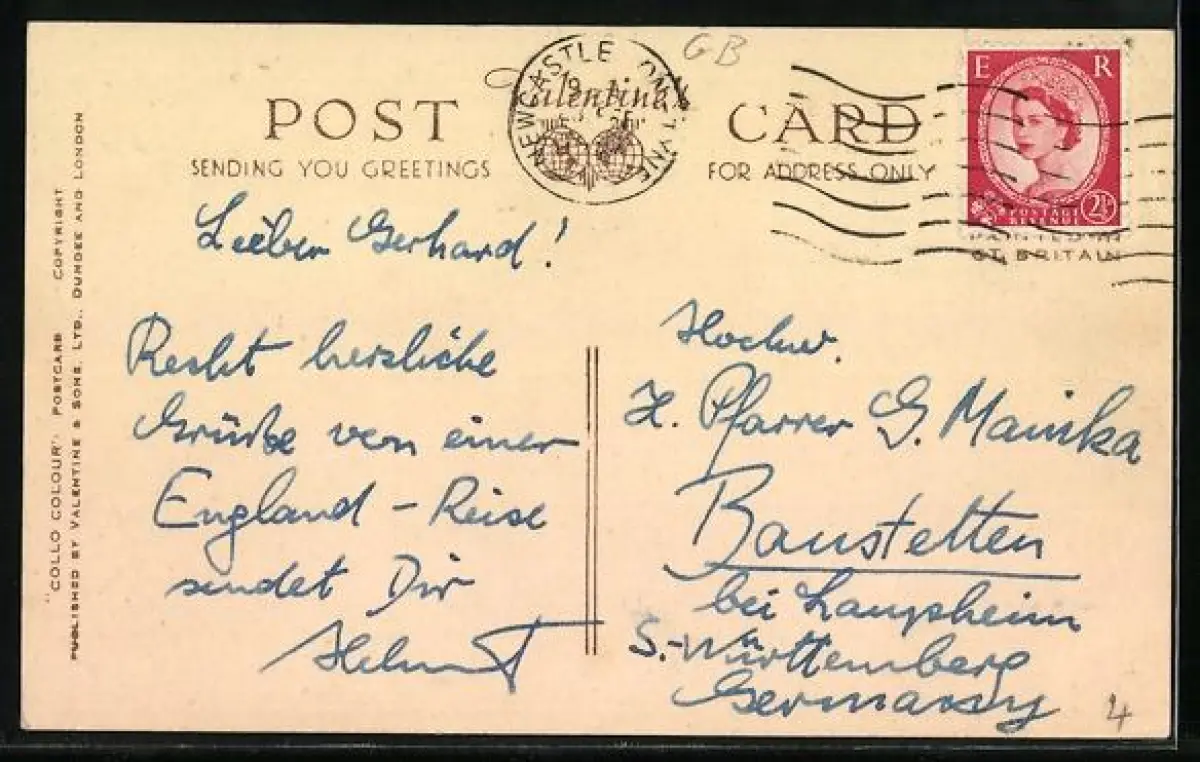 GB
POST CARD
Valentine's
NEWCASTLE ON TYNE
SENDING YOU GREETINGS
FOR ADDRESS ONLY
E R
POSTAGE
REVENUE
2½D
PRINTED IN
GT. BRITAIN
"COLLO COLOUR" POSTCARD COPYRIGHT
PUBLISHED BY VALENTINE & SONS, LTD., DUNDEE AND LONDON
Lieber Gerhard!
Recht herzliche
Grüße von einer
England-Reise
sendet Dir
Helmut
Hochw.
H. Pfarrer G. Mainka
Baustetten
bei Laupheim
S.-Württemberg
Germany
4